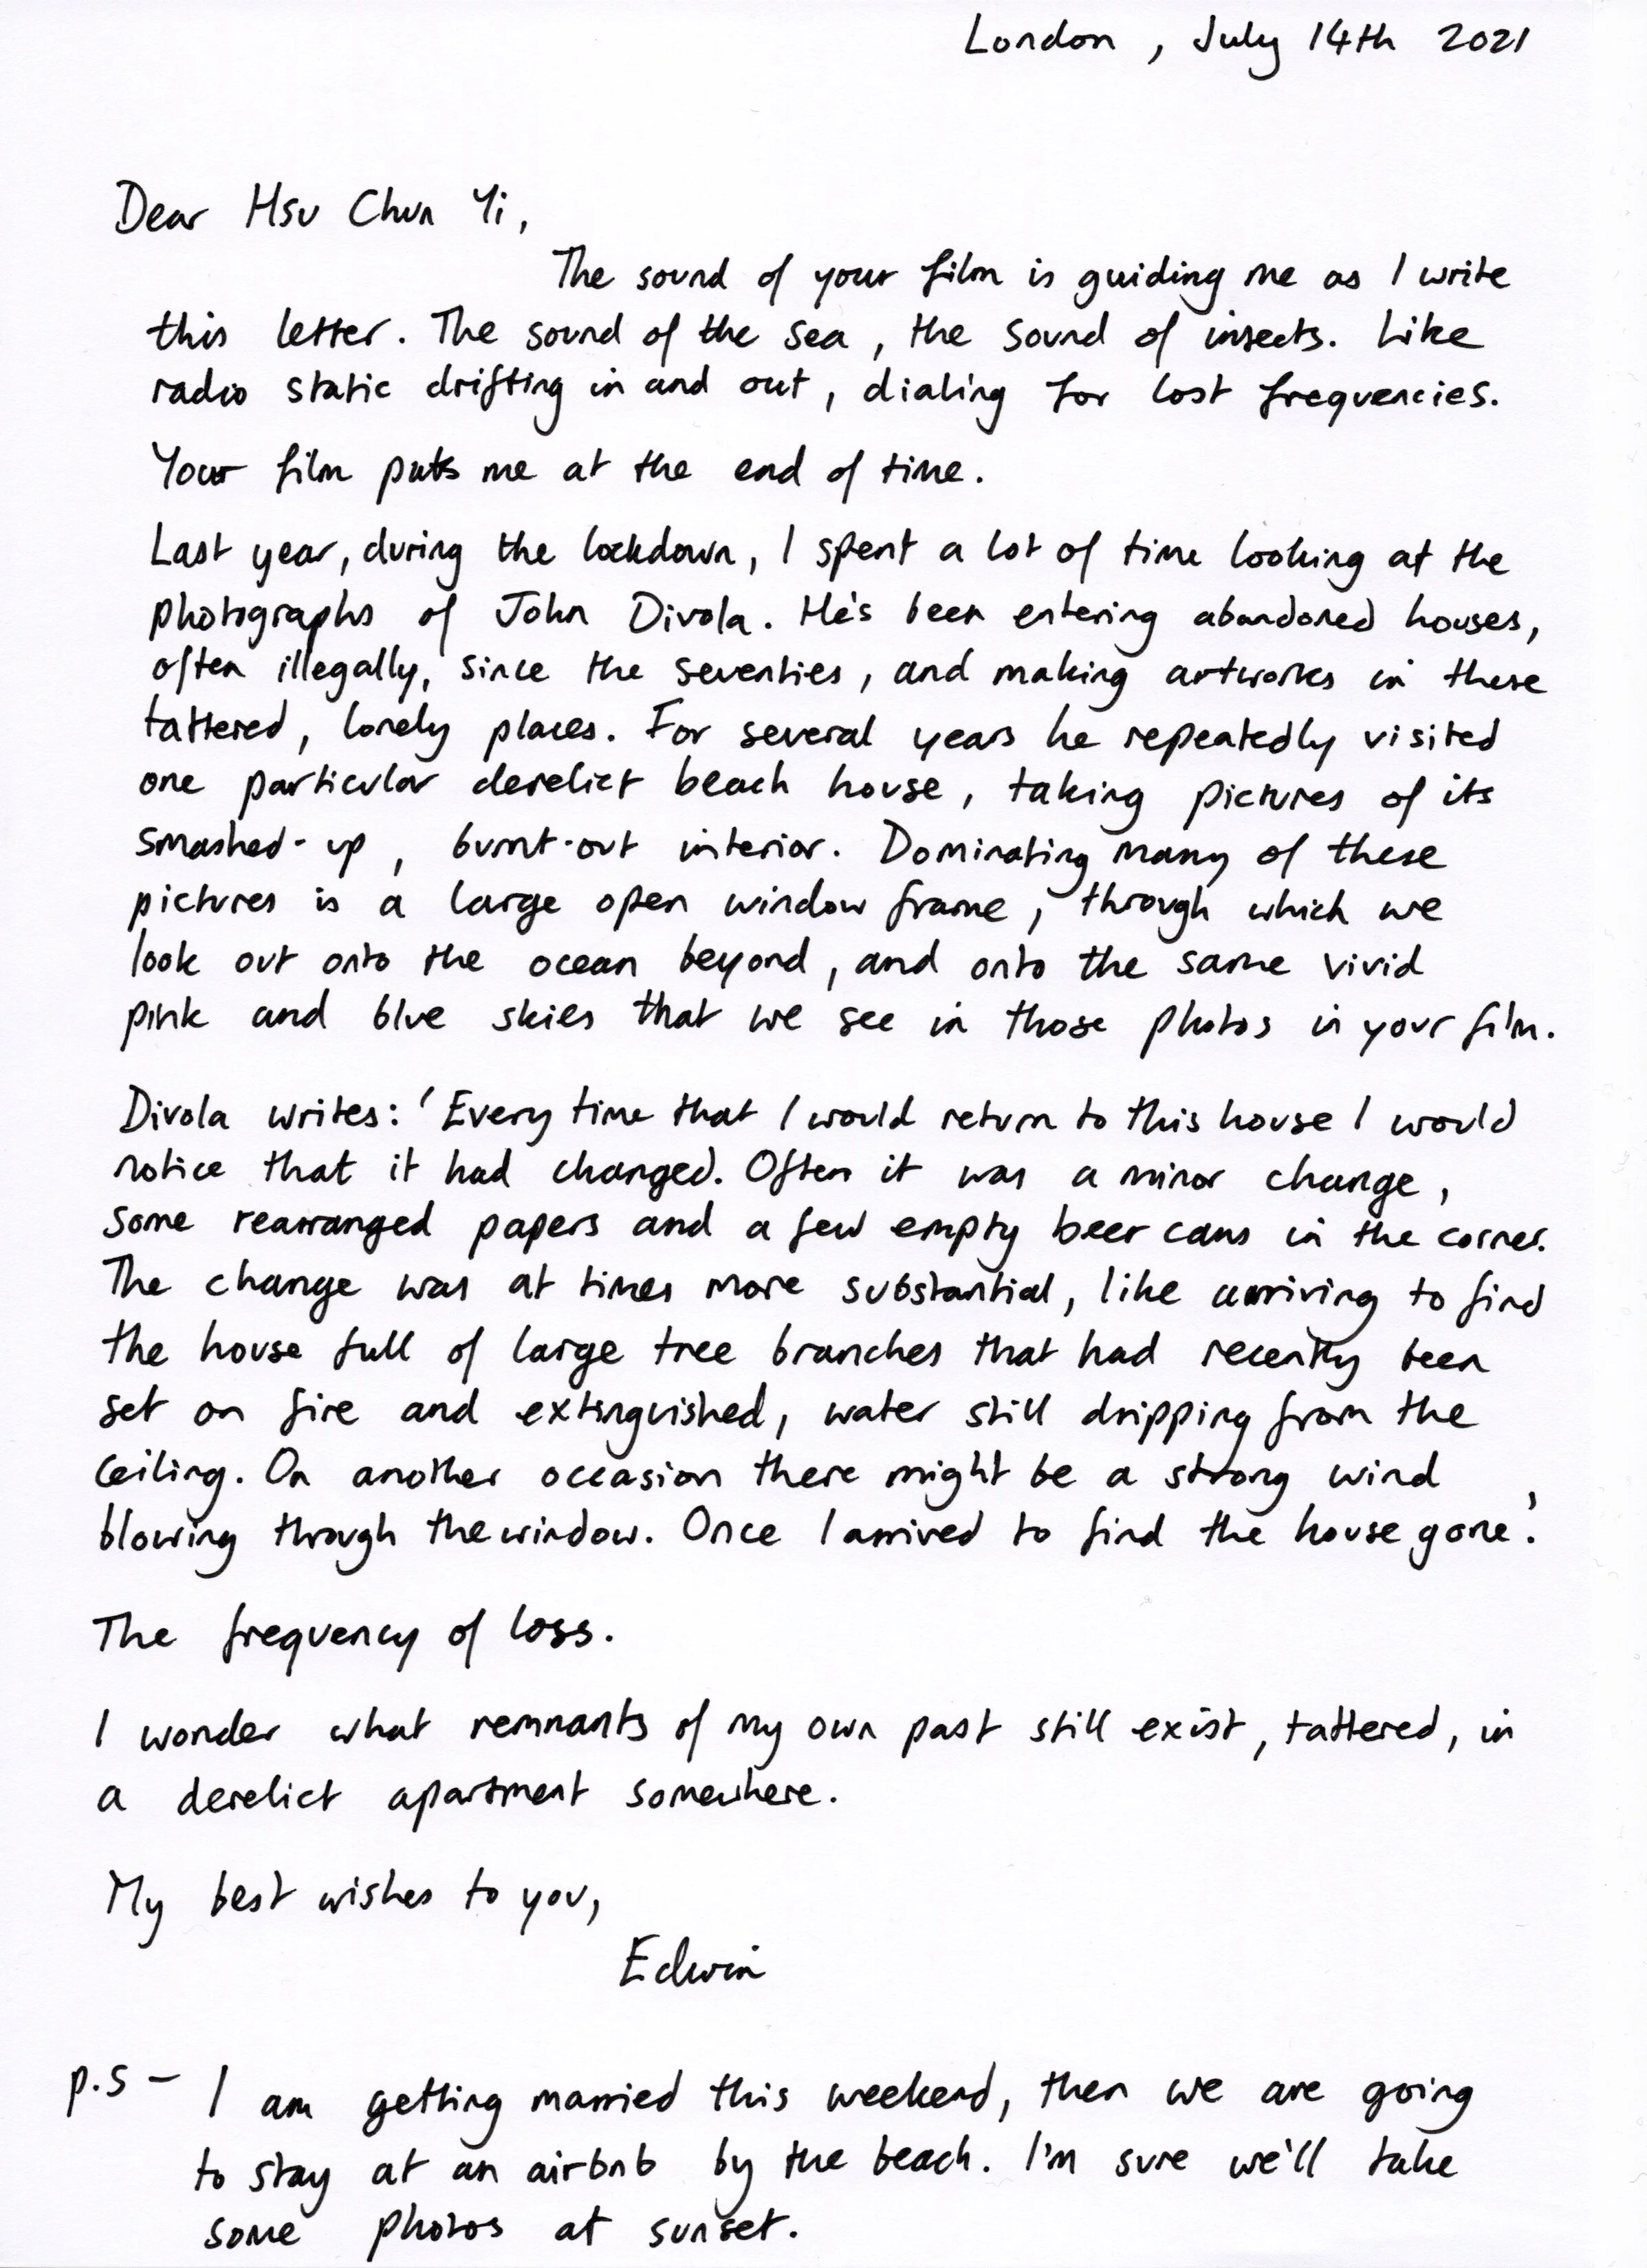 London, July 14th 2021
Dear Hsu Chun Yi,
The sound of your film is guiding me as I write
this letter. The sound of the sea, the sound of insects. Like
radio static drifting in and out, dialing for lost frequencies.
Your film puts me at the end of time.
Last year, during the lockdown, I spent a lot of time looking at the
photographs of John Divola. He's been entering abandoned houses,
often illegally, since the seventies, and making artworks in these
tattered, lonely places. For several years he repeatedly visited
one particular derelict beach house, taking pictures of its
smashed-up, burnt-out interior. Dominating many of these
pictures is a large open window frame, through which we
look out onto the ocean beyond, and onto the same vivid
pink and blue skies that we see in those photos in your film.
Divola writes: 'Every time that I would return to this house I would
notice that it had changed. Often it was a minor change,
some rearranged papers and a few empty beer cans in the corner.
The change was at times more substantial, like arriving to find
the house full of large tree branches that had recently been
set on fire and extinguished, water still dripping from the
ceiling. On another occasion there might be a strong wind
blowing through the window. Once I arrived to find the house gone.'
The frequency of loss.
I wonder what remnants of my own past still exist, tattered, in
a derelict apartment somewhere.
My best wishes to you,
Edwin
p.s – I am getting married this weekend, then we are going
to stay at an airbnb by the beach. I'm sure we'll take
some photos at sunset.